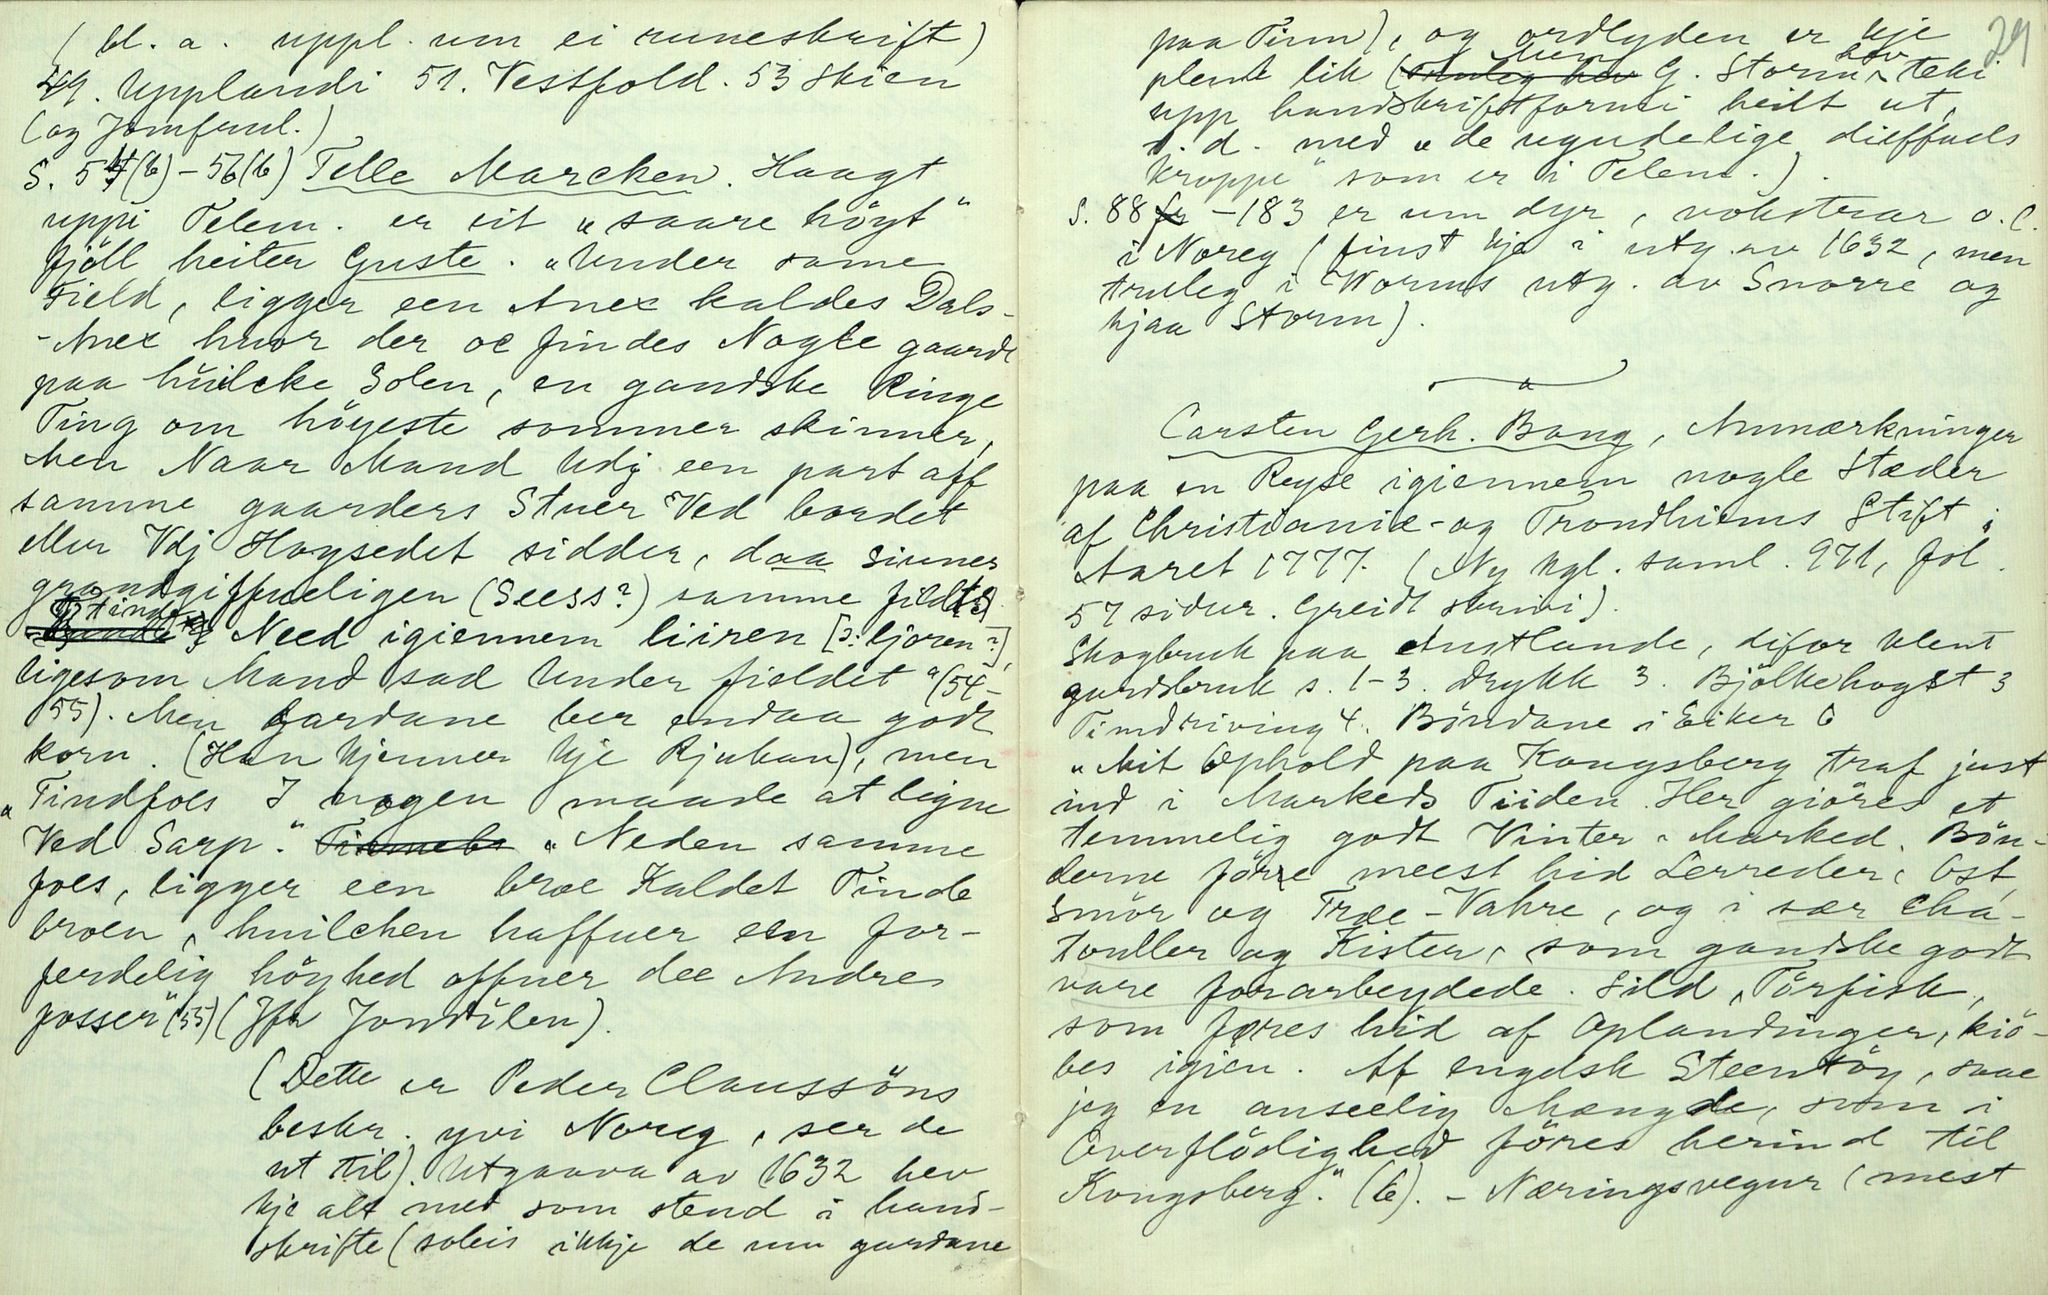 ( bl. a. uppl. um ei runeskrift)
49. Upplandi 51. Vestfold. 53 Skien
(og Jomfrul.)
S. 54(b) - 56(b) Telle Marcken. Haagt
uppi Telem. er eit "saare högt"
fjöll heiter Guste. "Under same
Field, ligger een Anex kaldes Dals-
-Anex huor der oc findes Nogle gaarde
paa huilcke Solen, en gandske Ringe
Ting om högeste sommer skinner,
Men Naar Mand Udj een part aff
samme gaarders Stuer Ved bordet
eller Vdj Hogsedet sidder, daa siunes
grandgiffueligen (Seess?) samme field(ts)
Tinde Need igiennem liiren [ɔ: ljoren?],
ligesom Mand sad Under fieldet" (54-
55). Men gardane ber endaa godt
korn. (Han kjenner kje Rjukan), men
"Tindfoes I nogen maade at ligne
Ved Sarp." "Neden samme
foes, ligger een broe Kaldet Tinde
broen, huilchen haffuer een for-
ferdelig höyhed offuer dee Andre
fosser" (55) (Jfr Jondölen).
(Dette er Peder Claussöns
beskr. yvi Noreg, ser de
ut til). Utgaava av 1632 hev
kje alt med som stend i hand-
skrifte (soleis ikkje de um gardane
29
paa Tinn), og ordlyden er kje
plent lik (truleg hev men G. Storm hev teki
upp handskriftformi heilt ut,
t. d. med "de ugudelige dieffuels
kroppe" som er i Telem.).
S. 88 fr -183 er um dyr, vokstrar o. l.
i Noreg (finst kje i utg. av 1632, men
truleg i Worms utg. av Snorre og
hjaa Storm).
Carsten Gerh. Bang, Anmærkninger
paa en Reyse igiennem nogle Stæder
af Christianie- og Trondhiems Stift i
Aaret 1777. (Ny kgl. saml. 971, fol.
57 sidur. Greidt skrivi).
Skogbruk paa Austlande, difor klent
gardsbruk s. 1-3. Drykk 3. Bjölkehogst 3
Timdriving 4. Böndane i Eiker 6
"Mit Ophold paa Kongsberg traf just
ind i Markeds Tiiden. Her giöres et
temmelig godt Vinter-Marked. Bön-
derne före meest hid Lerreder, Ost,
Smör og Træe-Vahre, og i sær Cha-
touller og Kister, som gandske godt
vare forarbeydede. Sild, Törfisk,
som föres hid af Oplandinger, kiö-
bes igien. Af engelsk Steentöy, saae
jeg en anseelig Mængde, som i
Overflödighed föres herind til
Kongsberg." (6). - Næringsvegur (mest